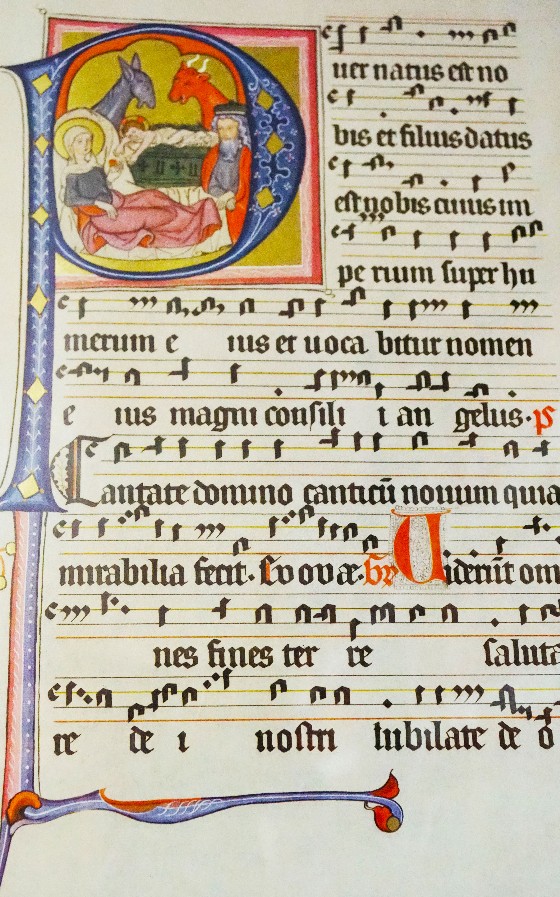 Puer natus est no
bis et filius datus
est nobis cuius im
pe rium super hu
merum e ius et uoca bitur nomen
e ius magni consili i an gelus. ps
Cantate domino canticū nouum quia
mirabilia fecit. Evovæ. Gr Uiderūt om
nes fines ter re saluta
re de i nostri Iubilate de o